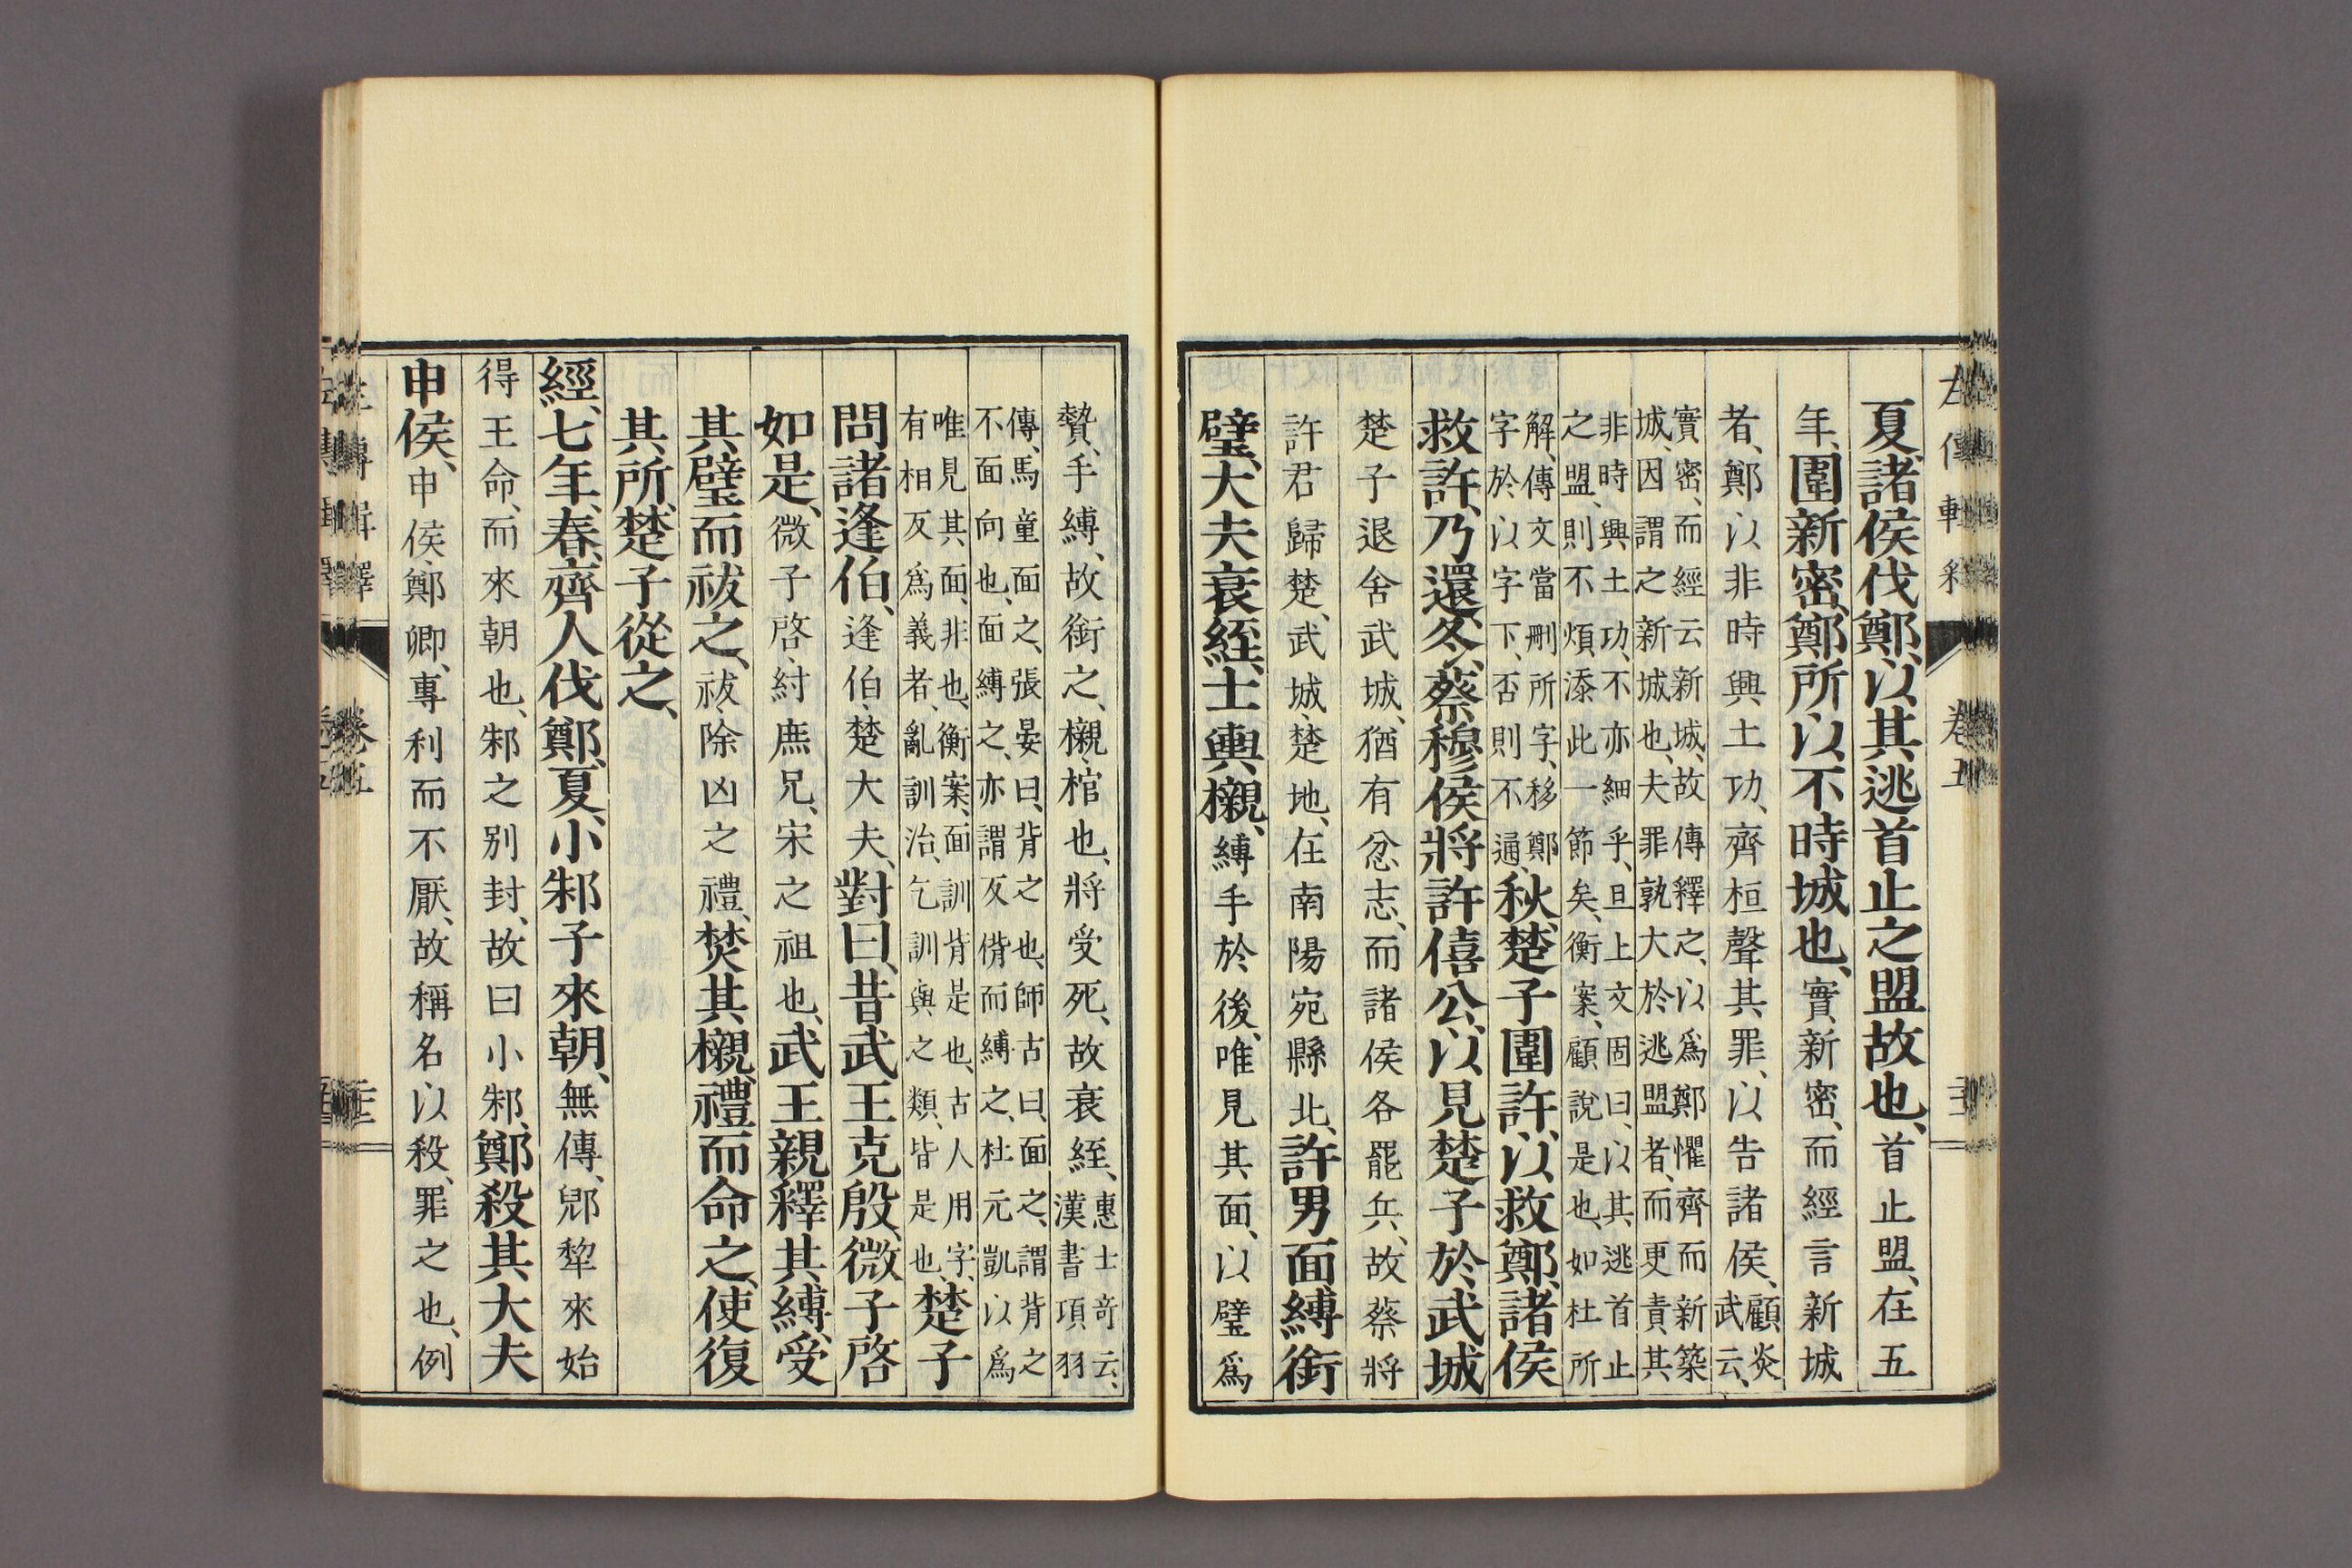 夏、諸侯伐鄭、以其逃首止之盟故也、首止盟、在五
年、圍新密、鄭所以不時城也、實新密、而經言新城
者、鄭以非時興土功、齊桓聲其罪、以告諸侯、顧炎武云、
實密、而經云新城、故傳釋之、以爲鄭懼齊而新築
城、因謂之新城也、夫罪孰大於逃盟者、而更責其
非時興土功、不亦細乎、且上文固曰、以其逃首止
之盟、則不煩添此一節矣、衡案、顧說是也、如杜所
解、傳文當刪所字、移鄭
字於以字下、否則不通、秋、楚子圍許、以救鄭、諸侯
救許、乃還、冬、蔡穆侯將許僖公、以見楚子於武城
楚子退舍武城、猶有忿志、而諸侯各罷兵、故蔡將
許君歸楚、武城、楚地、在南陽宛縣北、許男面縛銜
璧、大夫衰絰、士輿櫬、縛手於後、唯見其面、以璧爲
贄、手縛、故銜之、櫬、棺也、將受死、故衰絰、惠士奇云、漢書項羽
傳、馬童面之、張晏曰、背之也、師古曰、面之、謂背之
不面向也、面縛之、亦謂反偝而縛之、杜元凱以爲
唯見其面、非也、衡案、面訓背是也、古人用字、
有相反爲義者、亂訓治、乞訓與之類、皆是也、楚子
問諸逢伯、逢伯、楚大夫、對曰、昔武王克殷、微子啓
如是、微子啓、紂庶兄、宋之祖也、武王親釋其縛、受
其璧而祓之、祓、除凶之禮、焚其櫬、禮而命之、使復
其所、楚子從之、
經、七年、春、齊人伐鄭、夏、小邾子來朝、無傳、郳犂來始
得王命、而來朝也、邾之別封、故曰小邾、鄭殺其大夫
申侯、申侯、鄭卿、專利而不厭、故稱名以殺、罪之也、例